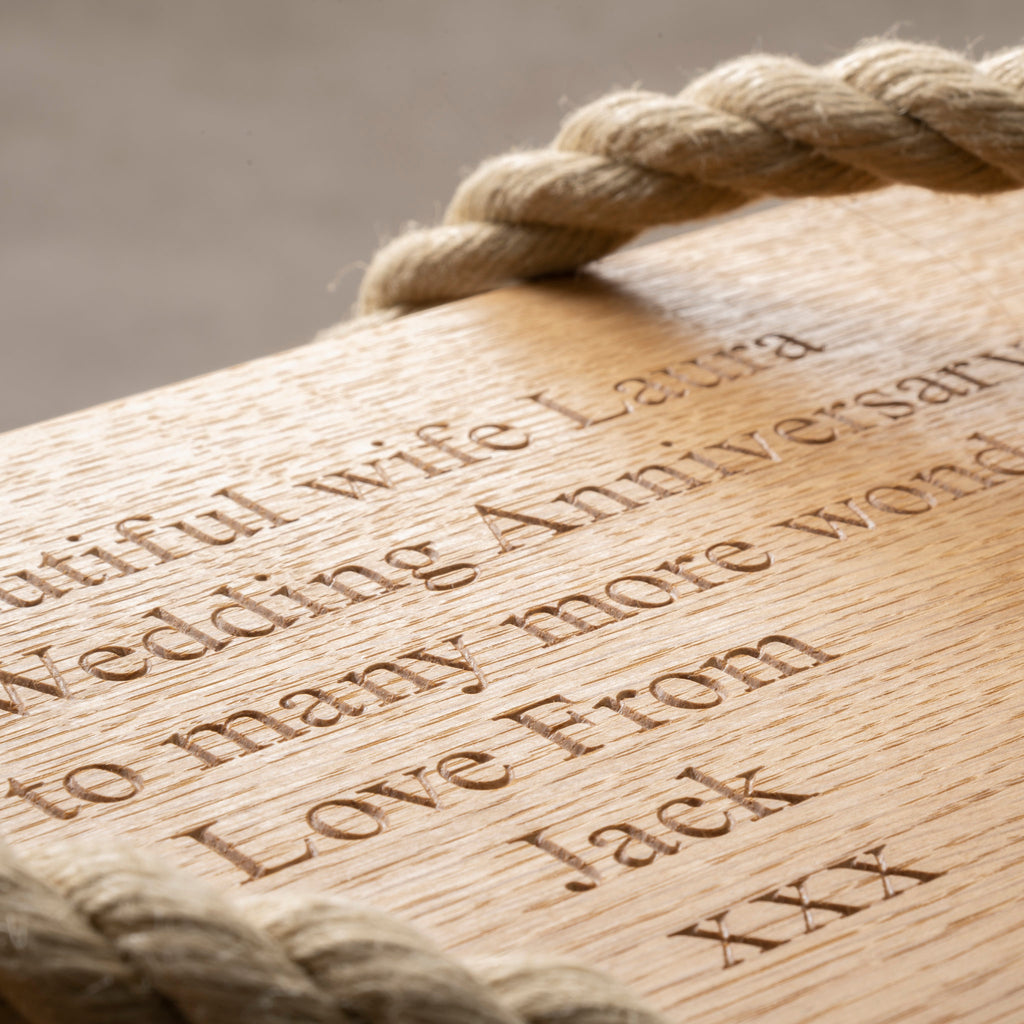 utiful wife Laura
Wedding Anniversary
to many more wond
Love From
Jack
xxx